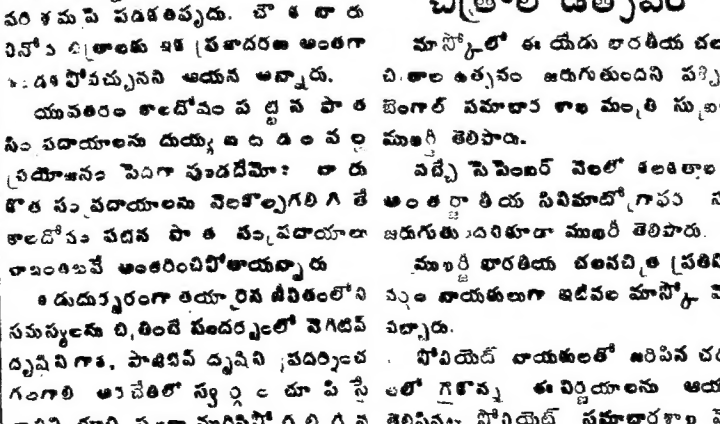 పరిశ్రమపై పడకతప్పదు. చౌకబారు
వినోద చిత్రాలకు ఇక ప్రజాదరణ అంతగా
పోవచ్చునని ఆయన అన్నారు.
యువతరం కాలదోషం పట్టిన పాత
సంప్రదాయాలను దుయ్యబట్టడం వల్ల
ప్రయోజనం పెద్దగా వుండదేమో! వారు
కొత్త సంప్రదాయాలను నెలకొల్పగలిగితే
కాలదోషం పట్టిన పాత సంప్రదాయాలు
వాటంతటవే అంతరించిపోతాయన్నారు
కడుదుష్కరంగా తయారైన జీవితంలోని
సమస్యలను చిత్రించే సందర్భంలో నెగెటివ్
దృష్టిని గాక, పాజిటివ్ దృష్టిని ప్రదర్శించ
గలగాలి చేతిలో స్వర్గం చూపిస్తే
చిత్రాల ఉత్సవం
మాస్కోలో ఈ యేడు భారతీయ చల
చిత్రాల ఉత్సవం జరుగుతుందని పశ్చి
బెంగాల్ సమాచార శాఖ మంత్రి సుబ్ర
ముఖర్జీ తెలిపారు.
వచ్చే సెప్టెంబర్ నెలలో కలకత్తాల
అంతర్జాతీయ సినిమాటోగ్రాఫర్ల స
జరుగుతుందనికూడా ముఖర్జీ తెలిపారు.
ముఖర్జీ భారతీయ చలనచిత్ర ప్రతిని
నాయకులుగా ఇటీవల మాస్కో వె
వచ్చారు.
సోవియెట్ నాయకులతో జరిపిన చర్
లలో గైకొన్న ఈ నిర్ణయాలను ఆయ
తెలిపినట్లు సోవియెట్ సమాచారశాఖ